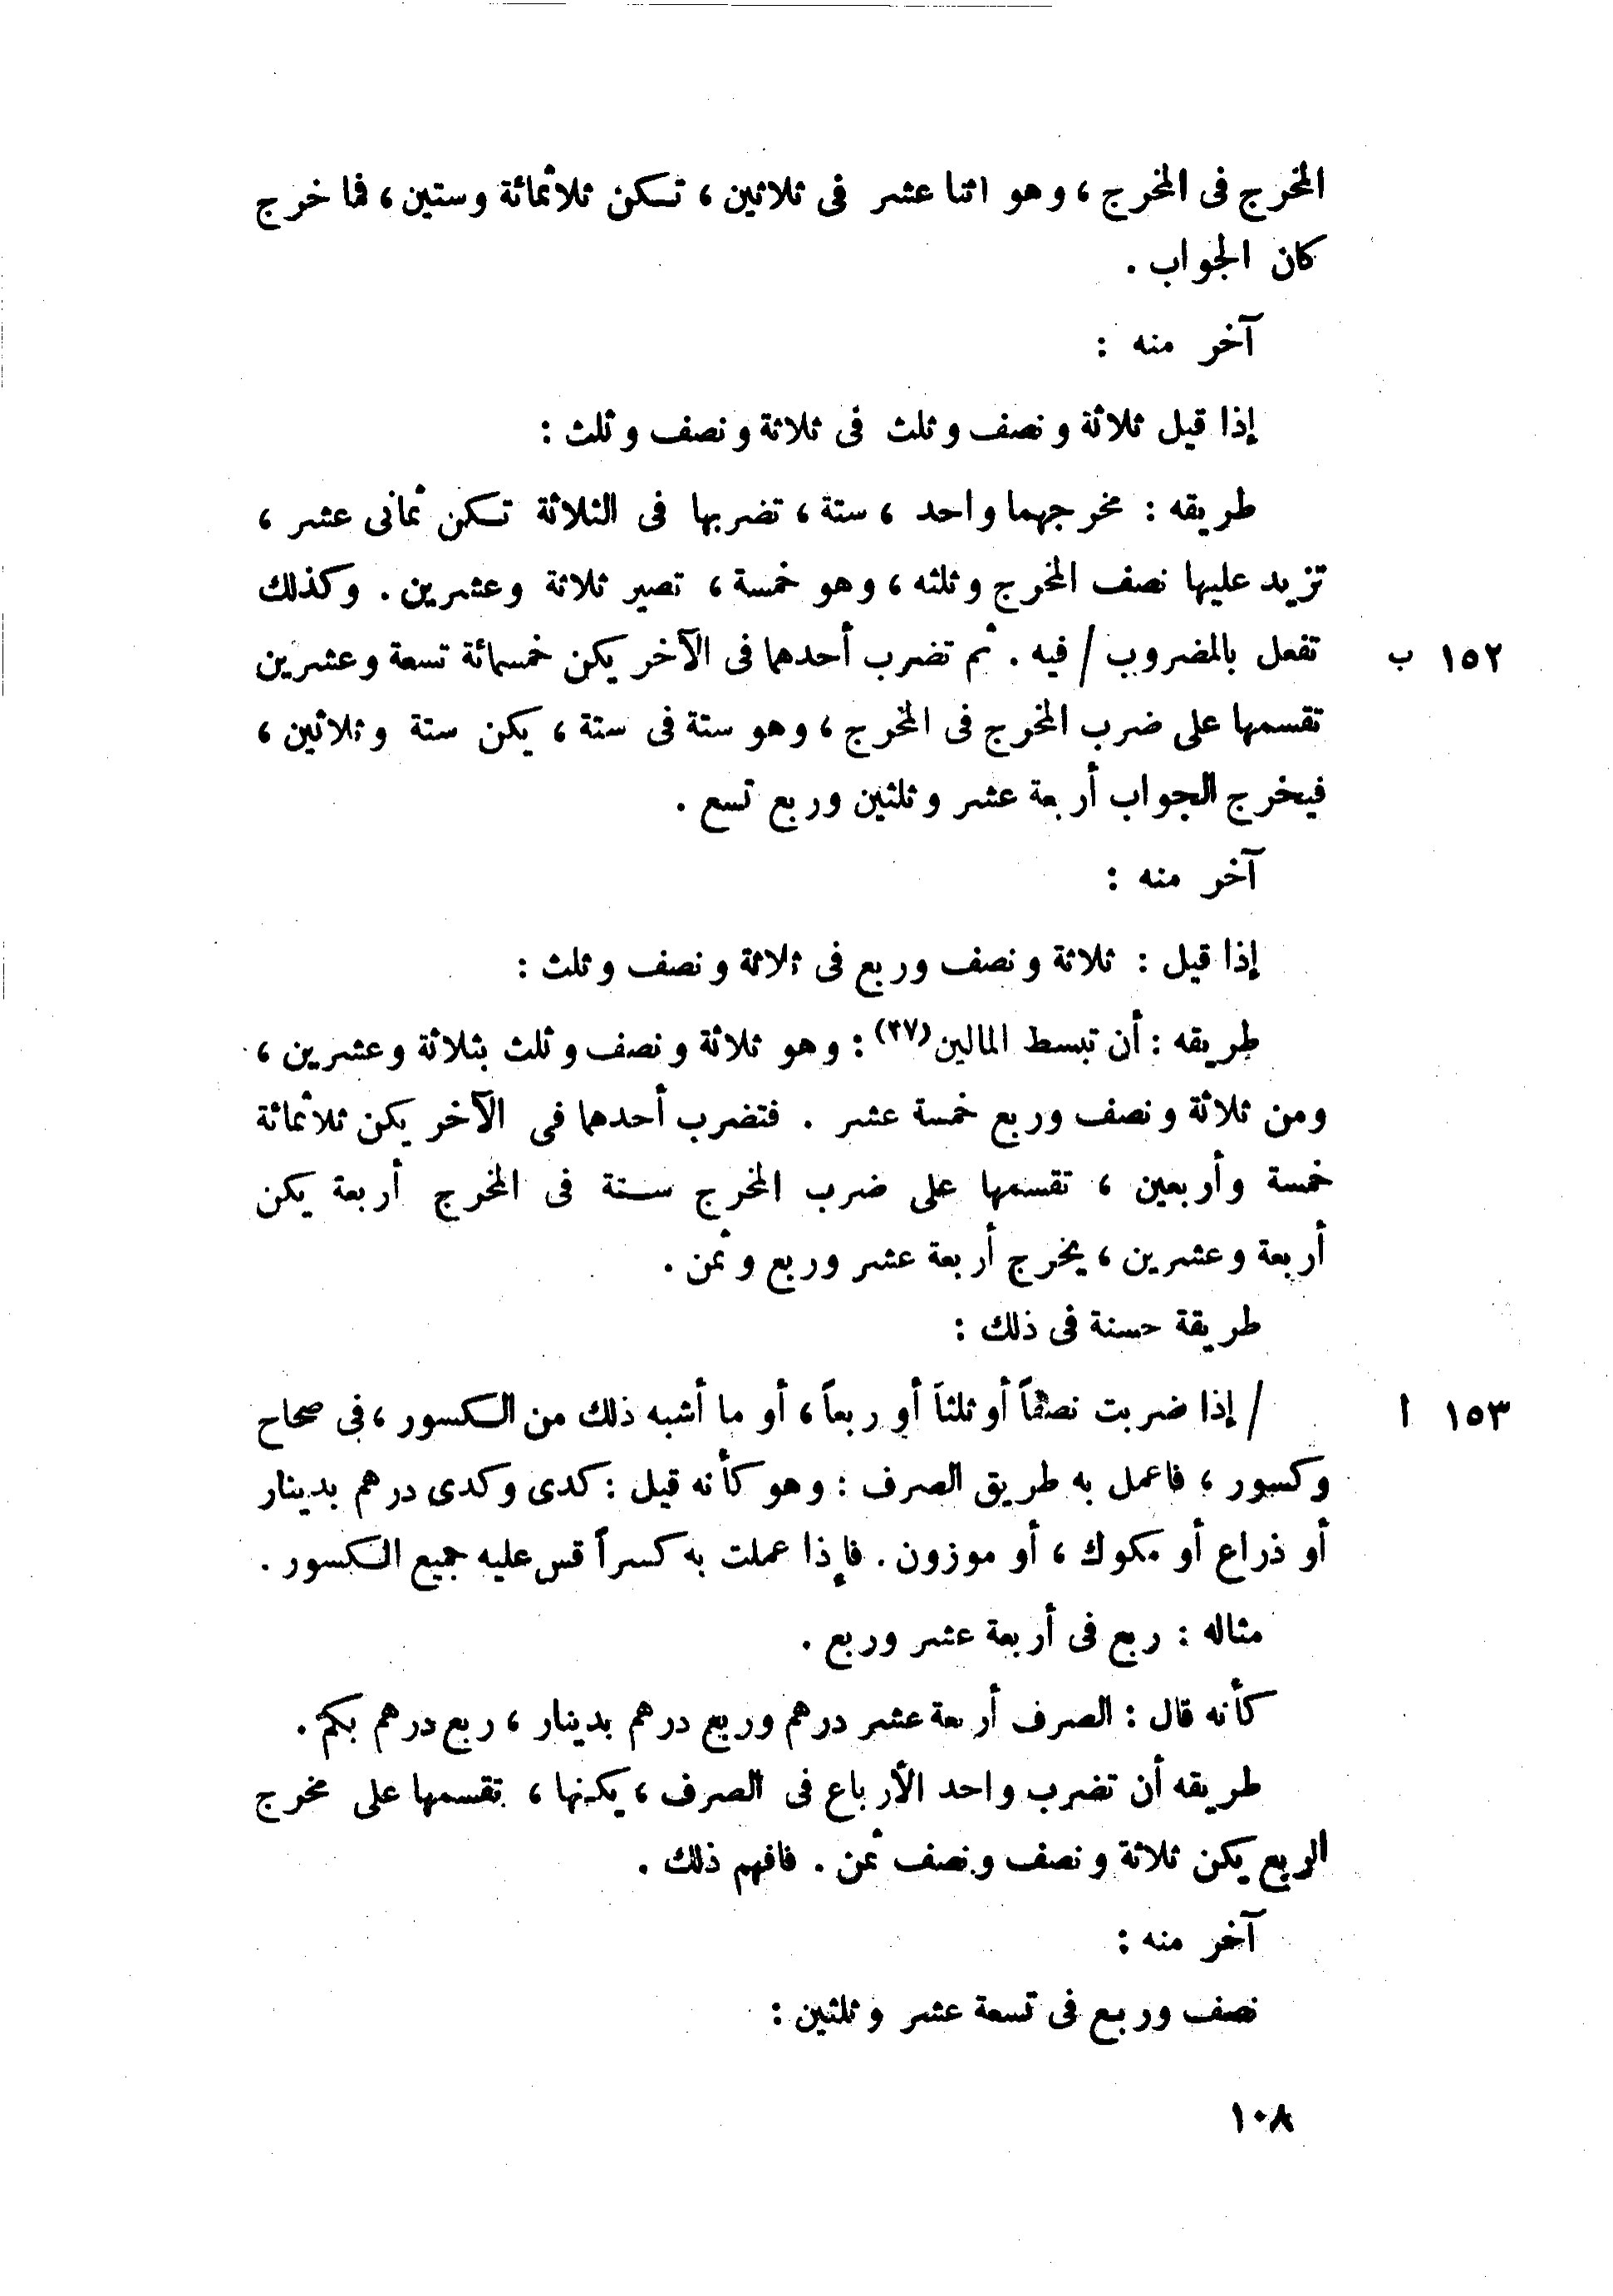 المخرج فى المخرج ، وهو اثنا عشر فى ثلاثين ، تسكن ثلاثمائة وستين ، فما خرج
كان الجواب .
آخر منه :
إذا قيل ثلاثة ونصف وثلث فى ثلاثة ونصف وثلث :
طريقه : مخرجهما واحد ، ستة ، تضربها فى الثلاثة تسكن ثمانى عشر ،
تزيد عليها نصف المخرج وثلثه ، وهو خمسة ، تصير ثلاثة وعشرين . وكذلك
تفعل بالمضروب / فيه . ثم تضرب أحدهما فى الآخر يكن خمسمائة تسعة وعشرين
١٥٢ ب
تقسمها على ضرب المخرج فى المخرج ، وهو ستة فى ستة ، يكن ستة وثلاثين ،
فيخرج الجواب أربعة عشر وثلثين وربع تسع .
آخر منه :
إذا قيل : ثلاثة ونصف وربع فى ثلاثة ونصف وثلث :
طريقه : أن تبسط المالين (٢٧) : وهو ثلاثة ونصف وثلث بثلاثة وعشرين ،
ومن ثلاثة ونصف وربع خمسة عشر . فتضرب أحدهما فى الآخر يكن ثلاثمائة
خمسة وأربعين ، تقسمها على ضرب المخرج ستة فى المخرج أربعة يكن
أربعة وعشرين ، يخرج أربعة عشر وربع وثمن .
طريقة حسنة فى ذلك :
/ إذا ضربت نصفاً أو ثلثاً أو ربعاً ، أو ما أشبه ذلك من الكسور ، فى صحاح
١٥٣ ا
وكسور ، فاعمل به طريق الصرف : وهو كأنه قيل : كدى وكدى درهم بدينار
أو ذراع أو مكوك ، أو موزون . فإذا عملت به كسراً قس عليه جميع الكسور .
مثاله : ربع فى أربعة عشر وربع .
كأنه قال : الصرف أربعة عشر درهم وربع درهم بدينار ، ربع درهم بكم .
طريقه أن تضرب واحد الأرباع فى الصرف ، يكنها ، تقسمها على مخرج
الربع يكن ثلاثة ونصف ونصف ثمن . فافهم ذلك .
آخر منه :
نصف وربع فى تسعة عشر وثلثين :
١٠٨